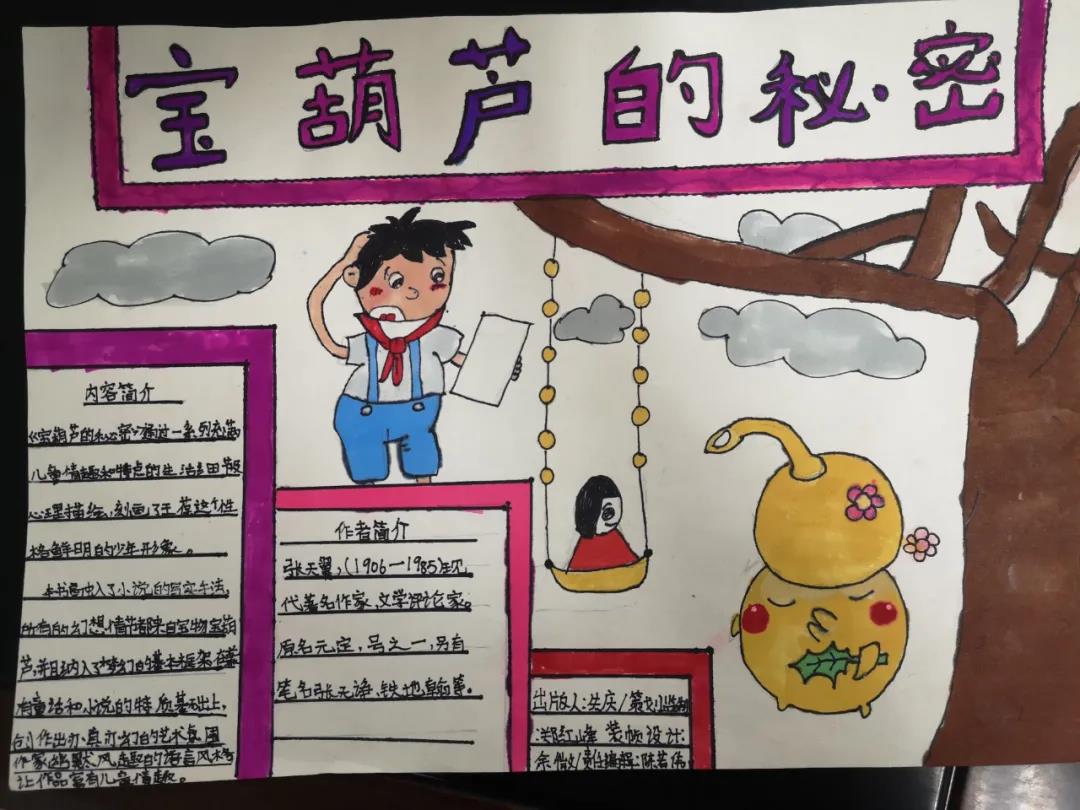 宝葫芦的秘密
内容简介
《宝葫芦的秘密》通过一系列充满
儿童情趣和特点的生活细节
心理描绘,刻画了王葆这个性
格鲜明的少年形象。
本书融入了小说的写实手法,
所有的幻想情节都来自宝物宝葫
芦,并且纳入了梦幻的基本框架,在兼
有童话和小说的特质基础上,
创作出亦真亦幻的艺术氛围
作家幽默风趣的语言风格
让作品富有儿童情趣。
作者简介
张天翼,(1906—1985)现
代著名作家、文学评论家。
原名元定,号之一,另有
笔名张无诤、铁池翰等。
出版人:安庆/策划监制
:郑红峰 装帧设计:
余微/责任编辑:陈若伟